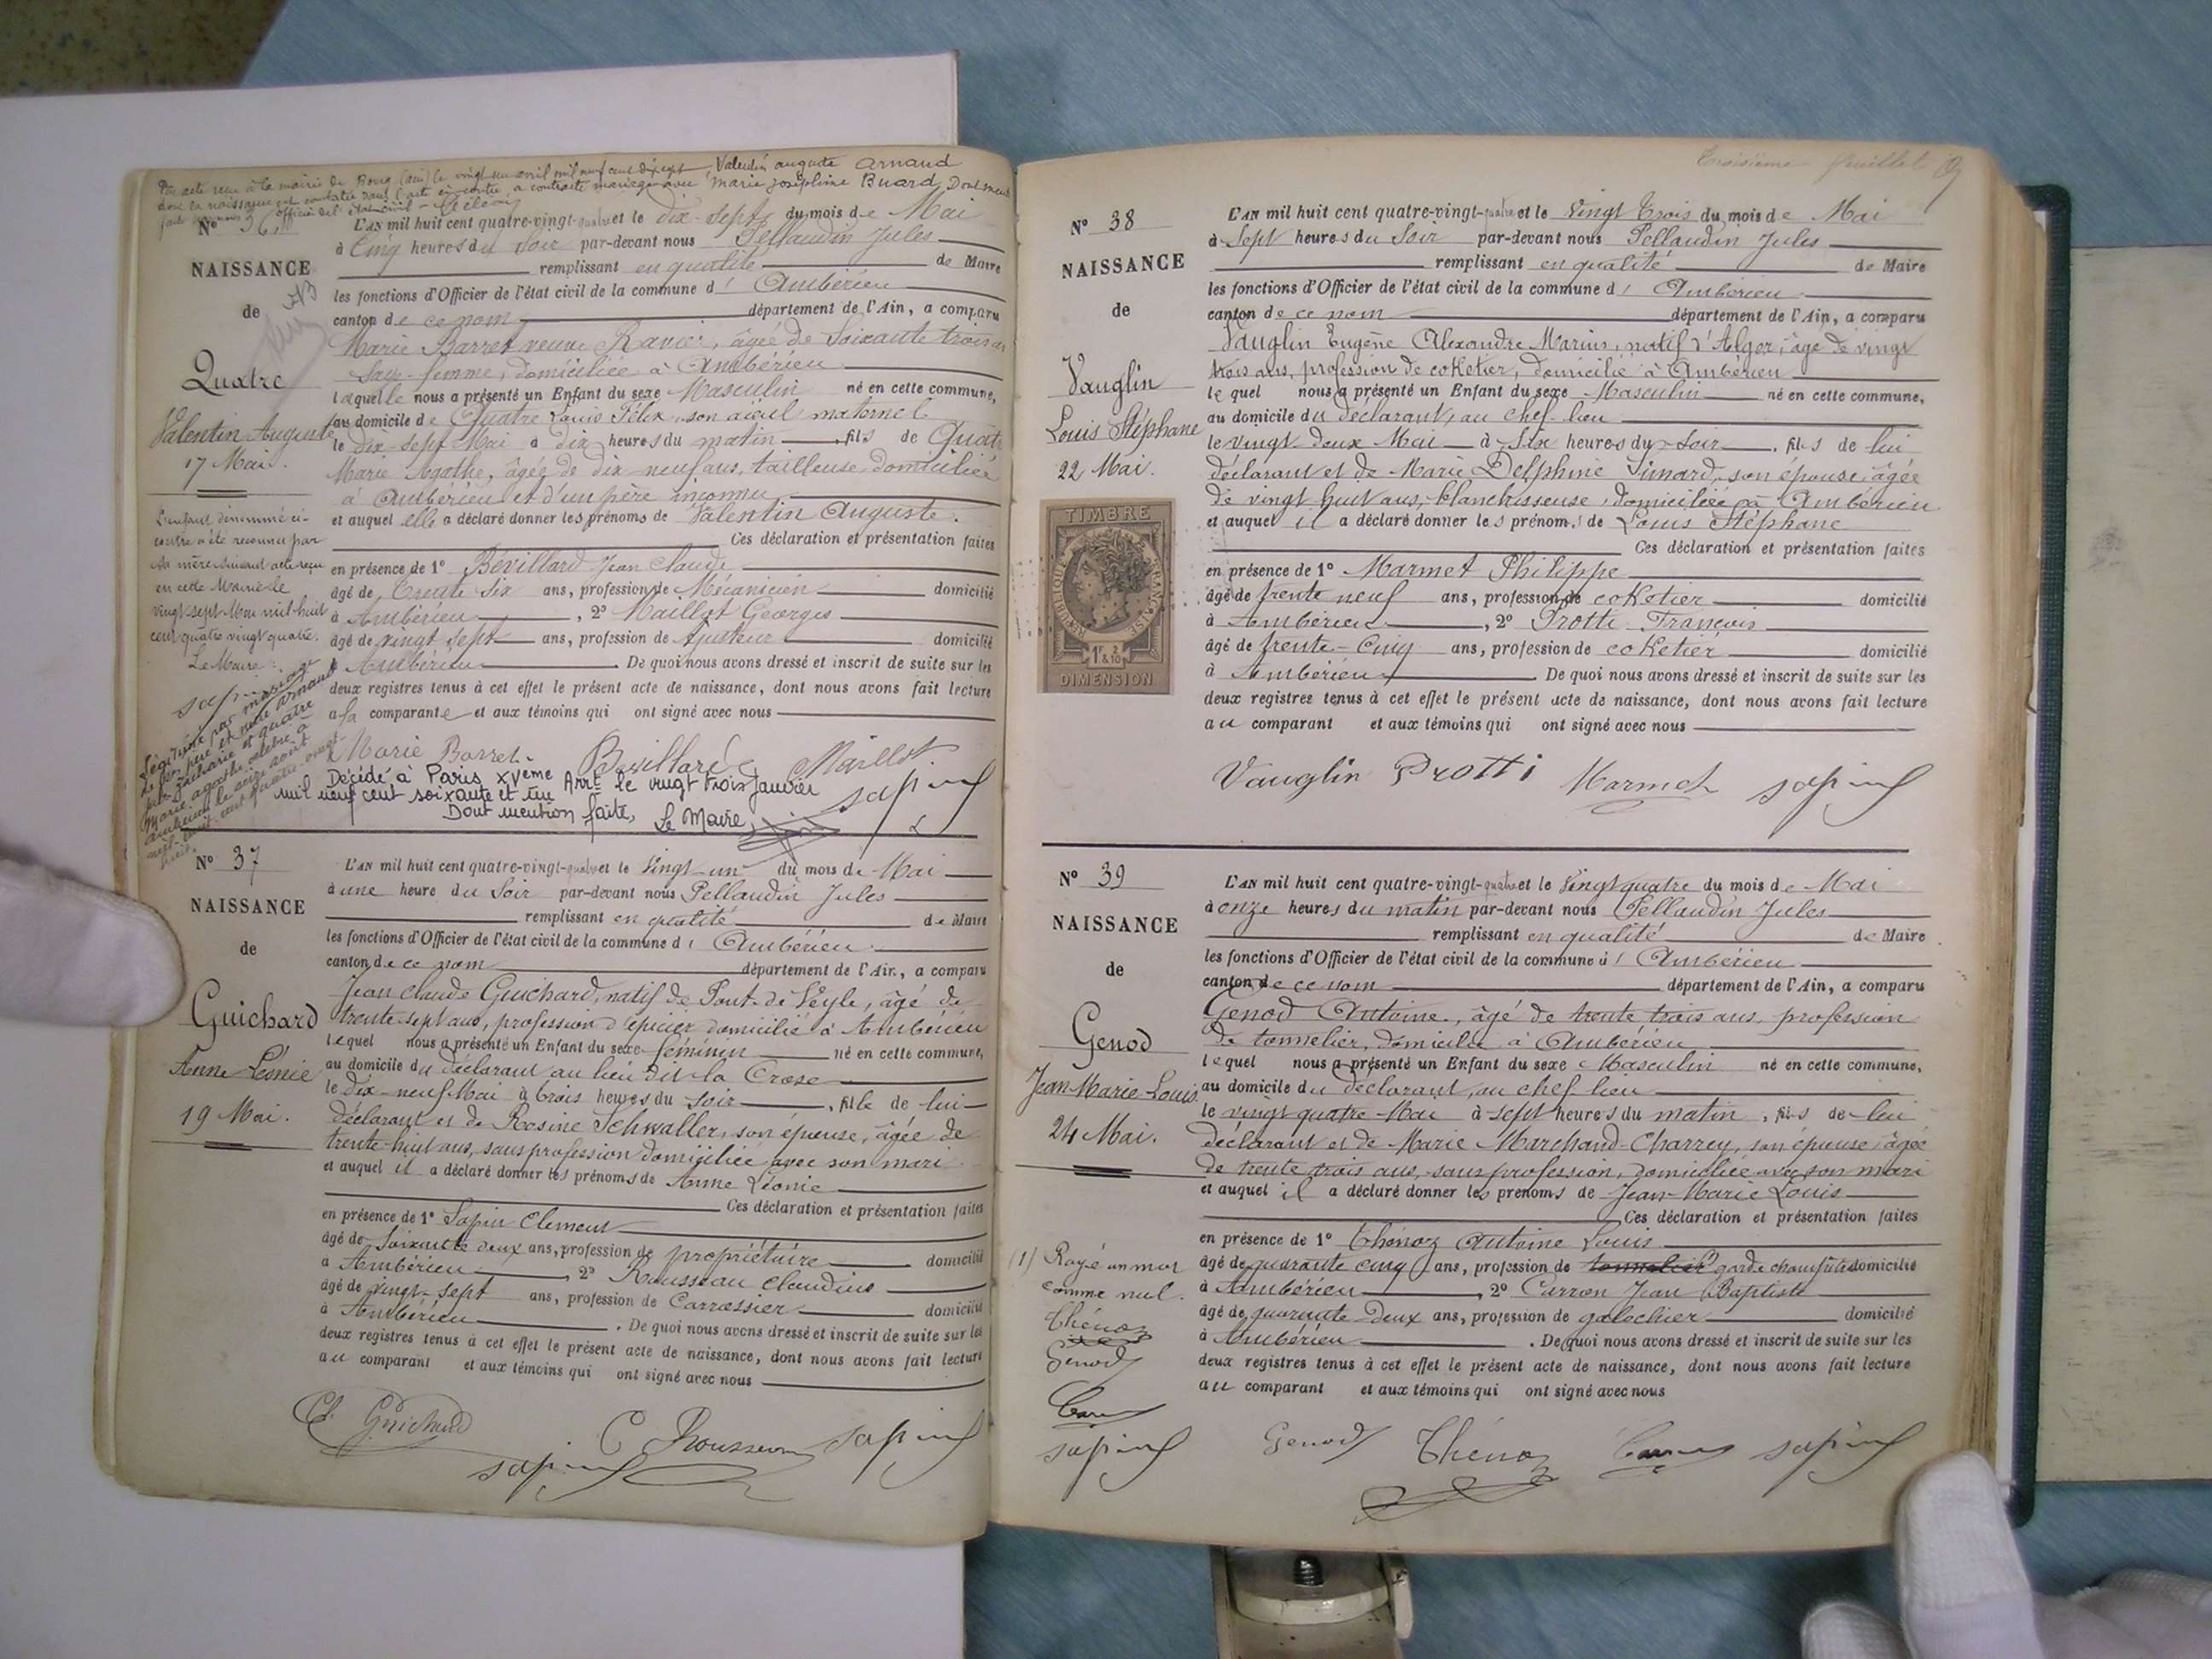 Par acte reçu à la mairie de Bourg (ain) le vingt-un avril mil neuf cent dix sept, Valentin auguste Arnaud
dont la naissance est constatée dans l'acte ci-contre, a contracté mariage avec Marie joséphine Buard. Dont mention
faite par nous officier de l'état-civil
N° 36
NAISSANCE
de
Quatre
Valentin Auguste
17 Mai.
L'enfant dénommé ci-
contre a été reconnu par
sa mère suivant acte reçu
en cette Mairie le
vingt-sept Mai mil huit
cent quatre vingt quatre.
Le Maire :
Légitimé par mariage
L'AN mil huit cent quatre-vingt-quatre et le dix-sept du mois de Mai
à Cinq heures du Soir par-devant nous Pellaudin Jules
remplissant en qualité de Maire
les fonctions d'Officier de l'état civil de la commune d' Ambérieu
canton de ce nom département de l'Ain, a comparu
Marie Barret veuve Ravier, âgée de Soixante trois ans
Sage-femme, domiciliée à Ambérieu
laquelle nous a présenté un Enfant du sexe Masculin né en cette commune,
au domicile de Quatre Louis Félix, son aïeul maternel
le dix-sept Mai à dix heures du matin, fils de Quatre
Marie Agathe, âgée de dix neuf ans, tailleuse domiciliée
à Ambérieu et d'un père inconnu,
et auquel elle a déclaré donner les prénoms de Valentin Auguste.
Ces déclaration et présentation faites
en présence de 1° Bévillard Jean Claude
âgé de Trente Six ans, profession de Mécanicien domicilié
à Ambérieu, 2° Maillot Georges
âgé de vingt sept ans, profession de Ajusteur domicilié
à Ambérieu. De quoi nous avons dressé et inscrit de suite sur les
deux registres tenus à cet effet le présent acte de naissance, dont nous avons fait lecture
à la comparante et aux témoins qui ont signé avec nous
Marie Barret. Bevillard Maillot
Décédé à Paris XVème Arrt. le vingt trois Janvier
mil neuf cent soixante et un
Dont mention faite, Le Maire,
N° 37
NAISSANCE
de
Guichard
Anne Léonie
19 Mai.
L'AN mil huit cent quatre-vingt-quatre et le Vingt-un du mois de Mai
à une heure du Soir par-devant nous Pellaudin Jules
remplissant en qualité de Maire
les fonctions d'Officier de l'état civil de la commune d' Ambérieu
canton de ce nom département de l'Ain, a comparu
Jean Claude Guichard, natif de Pont-de-Veyle, âgé de
trente-sept ans, profession d'épicier domicilié à Ambérieu
lequel nous a présenté un Enfant du sexe féminin né en cette commune,
au domicile du déclarant au lieu dit la Croze
le dix-neuf Mai à trois heures du Soir, fille de lui
déclarant et de Rosine Schwaller, son épouse, âgée de
trente-huit ans, sans profession domiciliée avec son mari
et auquel il a déclaré donner les prénoms de Anne Léonie
Ces déclaration et présentation faites
en présence de 1° Sapin Clément
âgé de Soixante deux ans, profession de propriétaire domicilié
à Ambérieu, 2° Rousseau Claudius
âgé de vingt-sept ans, profession de Carrossier domicilié
à Ambérieu. De quoi nous avons dressé et inscrit de suite sur les
deux registres tenus à cet effet le présent acte de naissance, dont nous avons fait lecture
au comparant et aux témoins qui ont signé avec nous
Guichard C Rousseau
Troisième feuillet
N° 38
NAISSANCE
de
Vauglin
Louis Stéphane
22 Mai.
TIMBRE
RÉPUBLIQUE FRANÇAISE
1F 2/10
DIMENSION
L'AN mil huit cent quatre-vingt-quatre et le Vingt Trois du mois de Mai
à Sept heures du Soir par-devant nous Pellaudin Jules
remplissant en qualité de Maire
les fonctions d'Officier de l'état civil de la commune d' Ambérieu
canton de ce nom département de l'Ain, a comparu
Vauglin Eugène Alexandre Marius, natif d'Alger, âgé de vingt
trois ans, profession de coketier, domicilié à Ambérieu
lequel nous a présenté un Enfant du sexe Masculin né en cette commune,
au domicile du déclarant, au chef-lieu
le vingt-deux Mai à Six heures du Soir, fils de lui
déclarant et de Marie Delphine Simard, son épouse âgée
de vingt huit ans, blanchisseuse, domiciliée à Ambérieu
et auquel il a déclaré donner les prénoms de Louis Stéphane
Ces déclaration et présentation faites
en présence de 1° Marmet Philippe
âgé de trente neuf ans, profession de coketier domicilié
à Ambérieu, 2° Protti François
âgé de trente-cinq ans, profession de coketier domicilié
à Ambérieu. De quoi nous avons dressé et inscrit de suite sur les
deux registres tenus à cet effet le présent acte de naissance, dont nous avons fait lecture
au comparant et aux témoins qui ont signé avec nous
Vauglin Protti Marmet
N° 39
NAISSANCE
de
Genod
Jean-Marie-Louis
24 Mai.
(1) Rayé un mot
comme nul.
Thénoz
Genod
L'AN mil huit cent quatre-vingt-quatre et le Vingt quatre du mois de Mai
à onze heures du matin par-devant nous Pellaudin Jules
remplissant en qualité de Maire
les fonctions d'Officier de l'état civil de la commune d' Ambérieu
canton de ce nom département de l'Ain, a comparu
Genod Antoine, âgé de trente trois ans, profession
de tonnelier, domicilié à Ambérieu
lequel nous a présenté un Enfant du sexe Masculin né en cette commune,
au domicile du déclarant, au chef-lieu
le vingt-quatre Mai à sept heures du matin, fils de lui
déclarant et de Marie Marchand-Charrey, son épouse âgée
de trente trois ans, sans profession, domiciliée avec son mari
et auquel il a déclaré donner les prénoms de Jean-Marie Louis
Ces déclaration et présentation faites
en présence de 1° Thénoz Antoine Louis
âgé de quarante cinq ans, profession de tonnelier garde champêtre domicilié
à Ambérieu, 2° Carron Jean Baptiste
âgé de quarante-deux ans, profession de galochier domicilié
à Ambérieu. De quoi nous avons dressé et inscrit de suite sur les
deux registres tenus à cet effet le présent acte de naissance, dont nous avons fait lecture
au comparant et aux témoins qui ont signé avec nous
Genod Thénoz